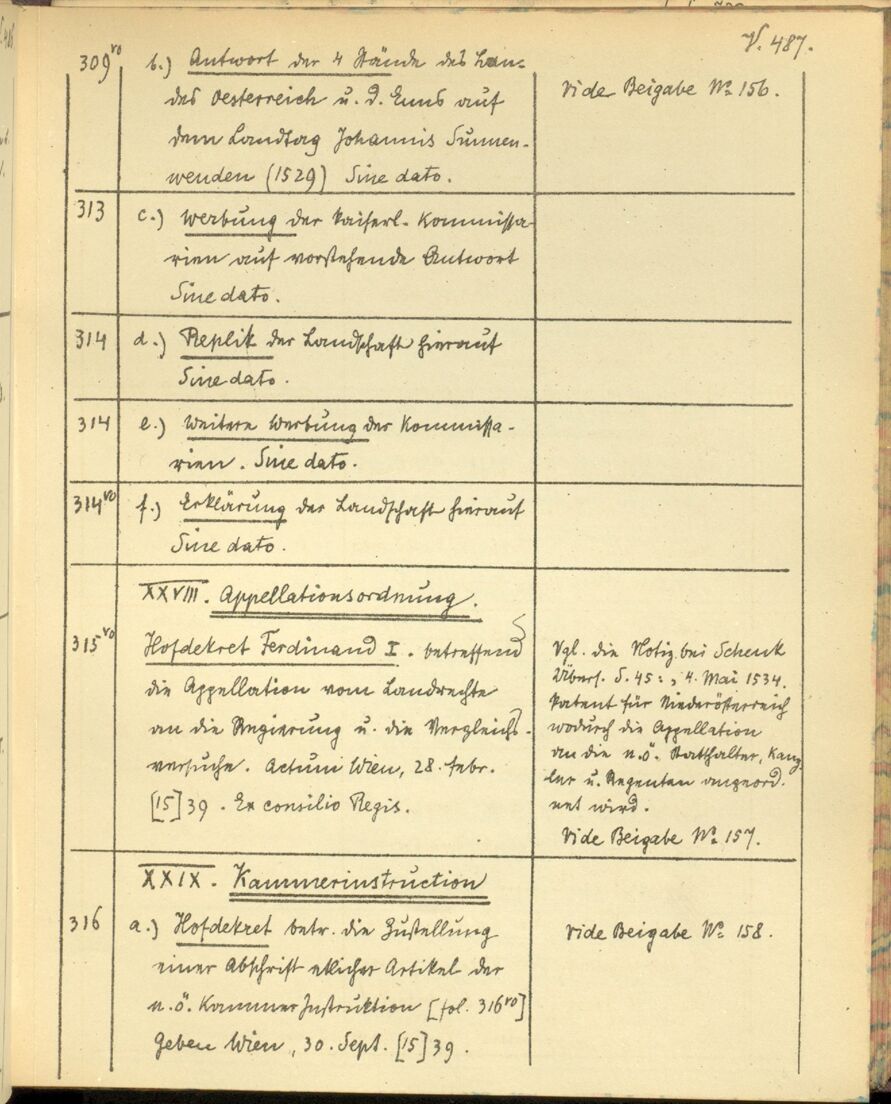 V. 487.
309vo b.) Antwort der 4 Stände des Lan-
des Oesterreich u. d. Enns auf
dem Landtag Johannis Sunnen-
wenden (1529) Sine dato.
Vide Beigabe No 156.
313 c.) Werbung der kaiserl. Kommissa-
rien auf vorstehende Antwort
Sine dato.
314 d.) Replik der Landschaft hierauf
Sine dato.
314 e.) Weitere Werbung der Kommissa-
rien. Sine dato.
314vo f.) Erklärung der Landschaft hierauf
Sine dato.
XXVIII. Appellationsordnung.
315vo Hofdekret Ferdinand I. betreffend
die Appellation vom Landrechte
an die Regierung u. die Vergleichs-
versuche. Actum Wien, 28. febr.
[15]39. Ex consilio Regis.
Vgl. die Notiz bei Schenk
Übers. S. 45: , 4. Mai 1534.
Patent für Niederösterreich
wodurch die Appellation
an die n.ö. Statthalter, Kanz
ler u. Regenten angeord.
net wird.
Vide Beigabe No 157.
XXIX. Kammerinstruction
316 a.) Hofdekret betr. die Zustellung
einer Abschrift etlicher Artikel der
n.ö. Kammer Instruktion [fol. 316vo]
Geben Wien, 30. Sept. [15]39.
Vide Beigabe No 158.